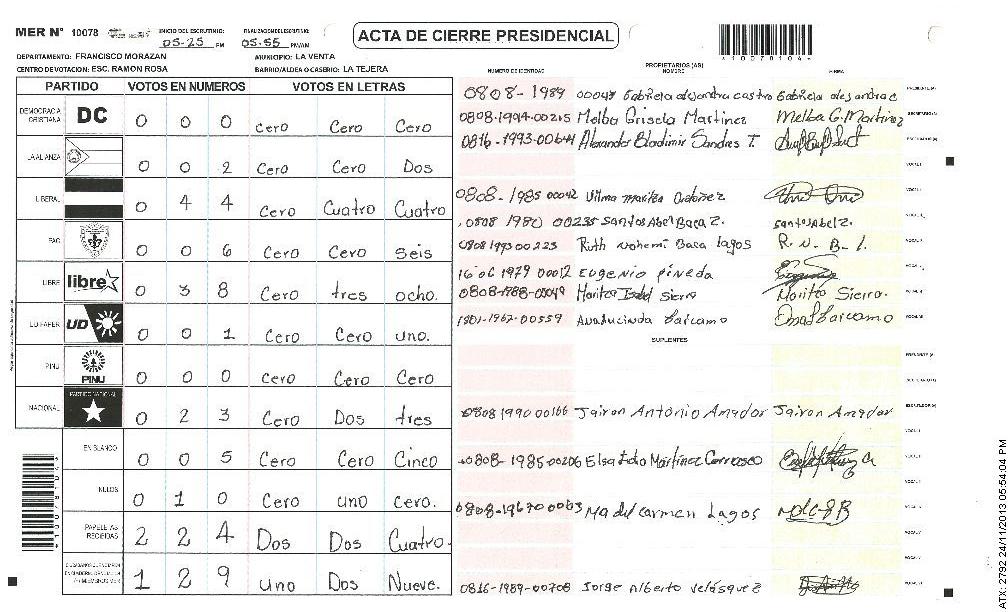 MER N° 10078 INICIO DEL ESCRUTINIO: 05-25 PM FINALIZACION DEL ESCRUTINIO: 05-55 PM/AM
ACTA DE CIERRE PRESIDENCIAL
*10078104*
DEPARTAMENTO: FRANCISCO MORAZAN MUNICIPIO: LA VENTA
CENTRO DE VOTACION: ESC. RAMON ROSA BARRIO/ALDEA O CASERIO: LA TEJERA
PARTIDO VOTOS EN NUMEROS VOTOS EN LETRAS
DEMOCRACIA CRISTIANA DC 0 0 0 Cero Cero Cero
LA ALIANZA 0 0 2 Cero Cero Dos
LIBERAL 0 4 4 Cero Cuatro Cuatro
PAC 0 0 6 Cero Cero seis
LIBRE libre 0 3 8 Cero tres ocho.
UD FAPER UD 0 0 1 Cero Cero uno.
PINU PINU 0 0 0 Cero Cero Cero
NACIONAL PARTIDO NACIONAL 0 2 3 Cero Dos tres
EN BLANCO 0 0 5 Cero Cero Cinco
NULOS 0 1 0 Cero uno Cero.
PAPELETAS RECIBIDAS 2 2 4 Dos Dos Cuatro.
1 2 9 uno Dos Nueve.
NUMERO DE IDENTIDAD PROPIETARIOS (AS) NOMBRE FIRMA
0808-1989 00047 Gabriela alejandra castro Gabriela alejandra c
0808-1994-00215 Melba Grisela Martinez Melba G. Martinez
0816-1993-00644 Alexander Bladimir Sandres T.
0808-1985 00042 Vilma maritza ordoñez
0808 1980 00235 Santos Abel Baca Z. santos Abel Z.
0808 1993 00223 Ruth nohemi Baca Lagos R. N. B. L.
1979 00012 Eugenio pineda
0808-1988-00049 Maritza Isabel Sierra Maritza Sierra.
1967-00559
SUPLENTES
0808 1990 00166 Jairon Antonio Amador Jairon Amador
0808-1985-00206 Elsa Martinez Carrasco
Ma del Carmen Lagos
0816-1989-00708 Jorge Alberto Velásquez
ATX 2792 24/11/2013 05:54:04 PM